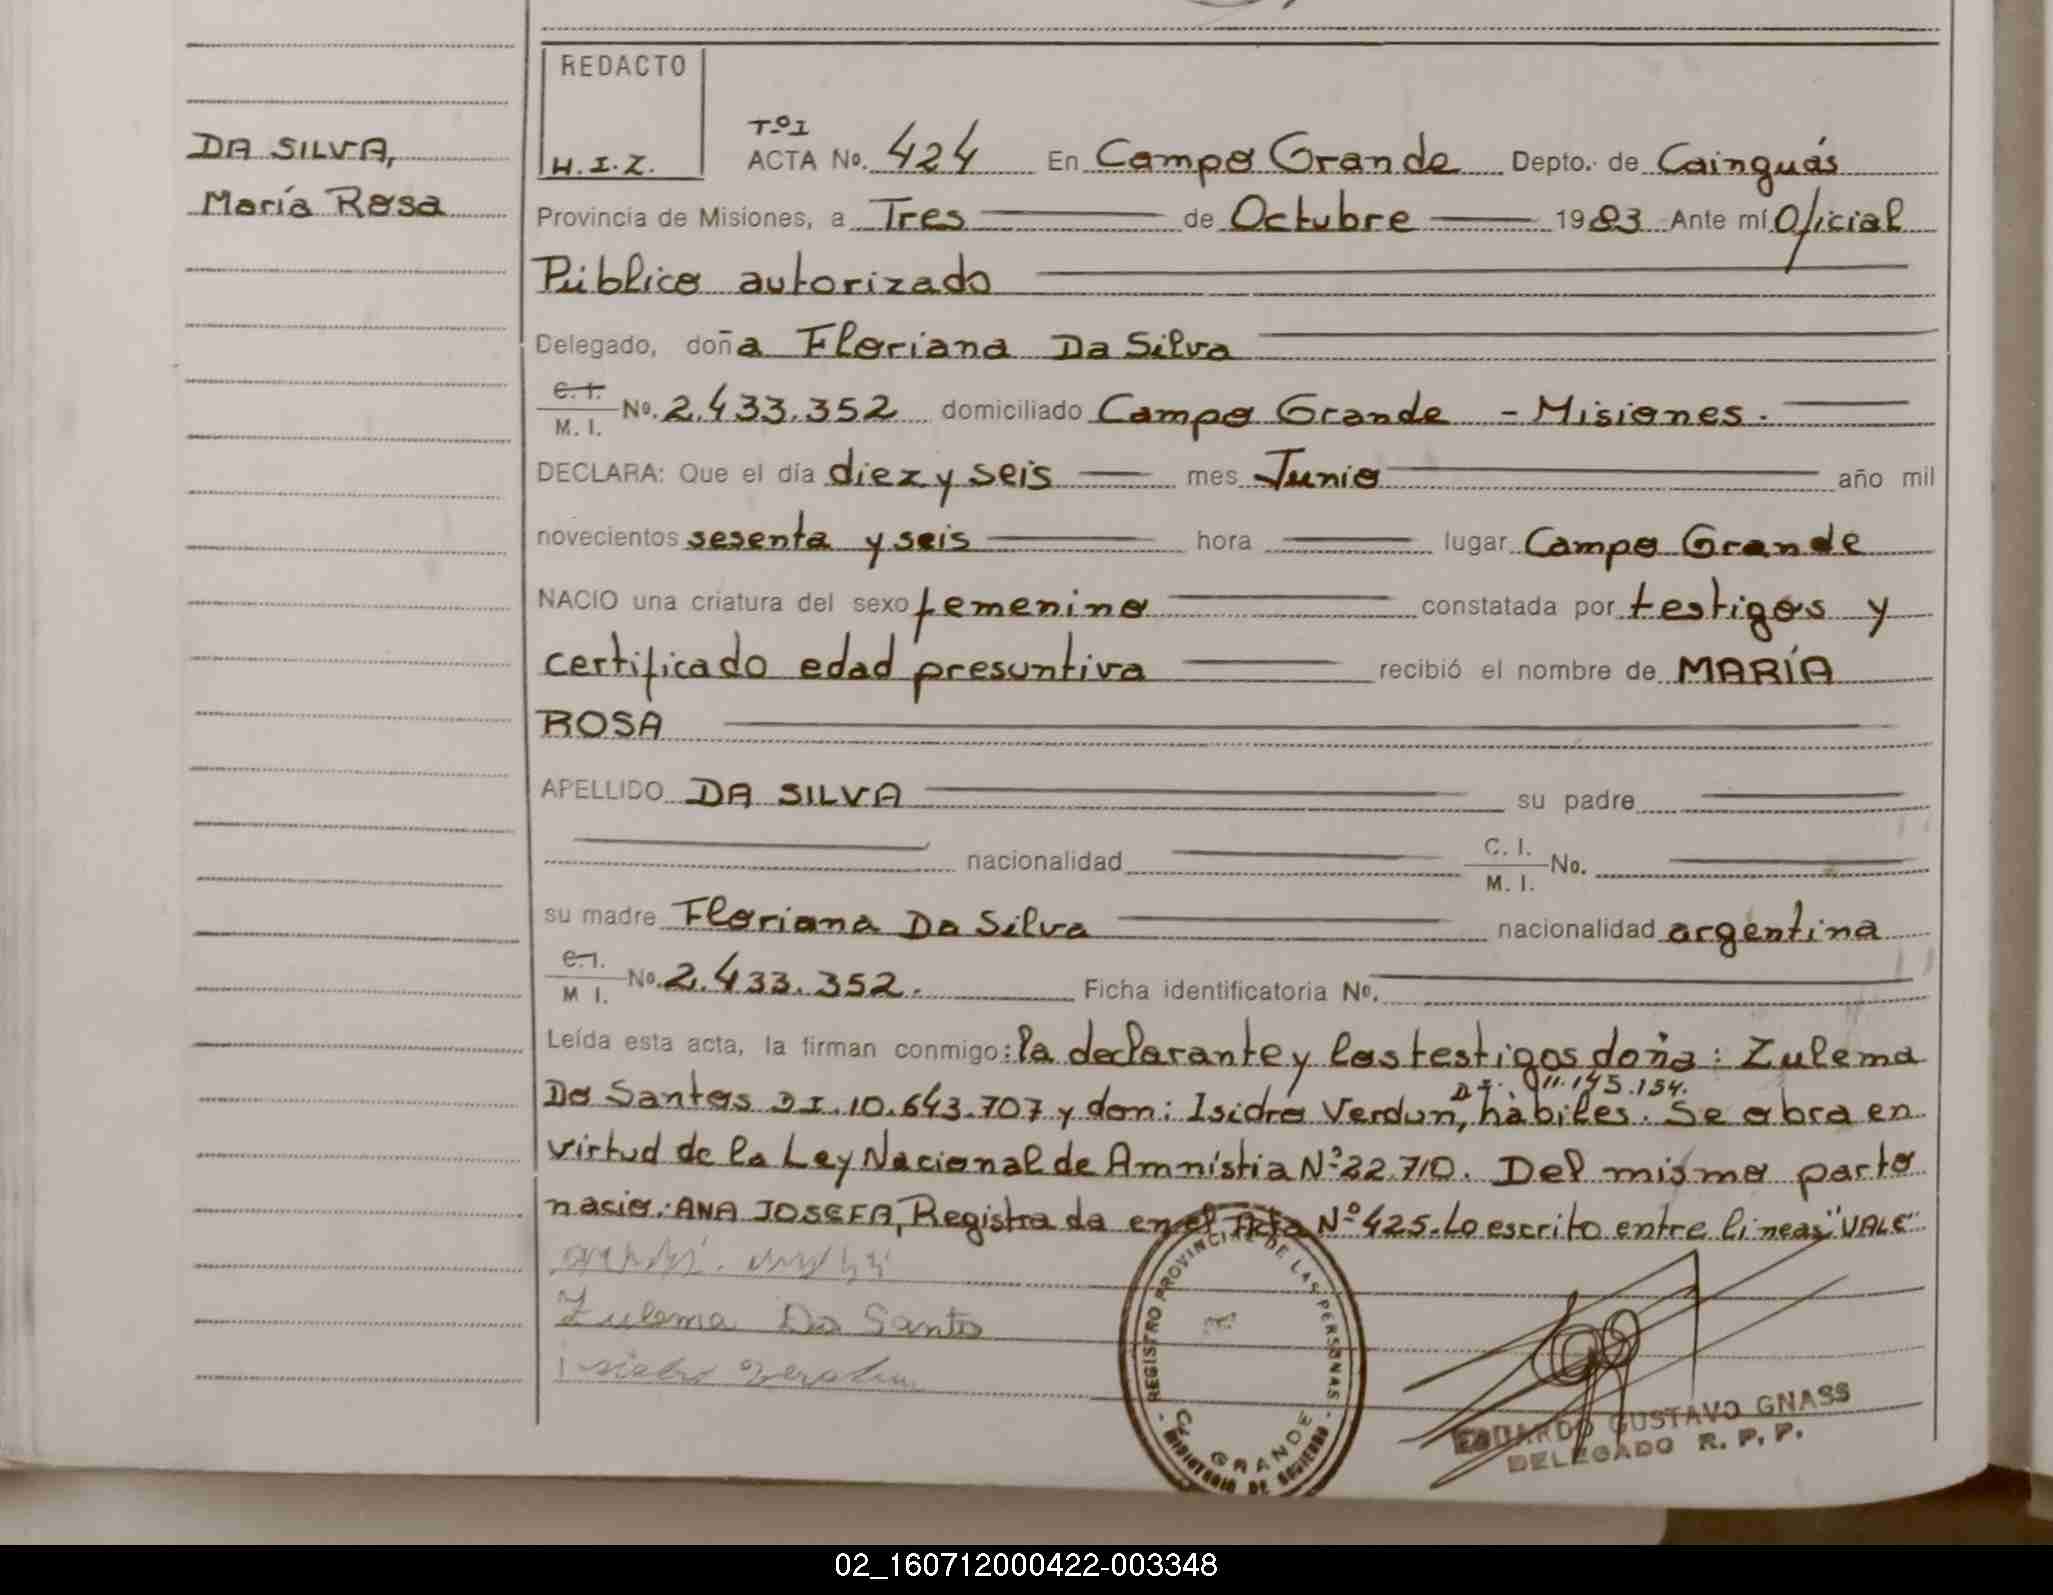 REDACTO
H.I.Z.
DA SILVA,
María Rosa
Tº I
ACTA No. 424 En Campo Grande Depto. de Cainguás
Provincia de Misiones, a Tres de Octubre 1983 Ante mí Oficial
Público autorizado
Delegado, doña Floriana Da Silva
C. I.
M. I. No. 2.433.352 domiciliado Campo Grande - Misiones.
DECLARA: Que el día diez y seis mes Junio año mil
novecientos sesenta y seis hora lugar Campo Grande
NACIO una criatura del sexo femenino constatada por testigos y
certificado edad presuntiva recibió el nombre de MARÍA
ROSA
APELLIDO DA SILVA su padre
nacionalidad C. I.
M. I. No.
su madre Floriana Da Silva nacionalidad argentina
C. I.
M I. No. 2.433.352. Ficha identificatoria No.
Leída esta acta, la firman conmigo: la declarante y los testigos doña: Zulema
D I. 11.145.154.
Do Santos D I. 10.643.707 y don: Isidro Verdun, hábiles. Se obra en
virtud de la Ley Nacional de Amnistia Nº 22.710. Del mismo parto
nacio: ANA JOSEFA, Registrada en el Acta Nº 425. Lo escrito entre lineas "VALE"
Zulema Do Santo
REGISTRO PROVINCIAL DE LAS PERSONAS
Co GRANDE
MINISTERIO DE GOBIERNO
EDUARDO GUSTAVO GNASS
DELEGADO R. P. P.
02_160712000422-003348